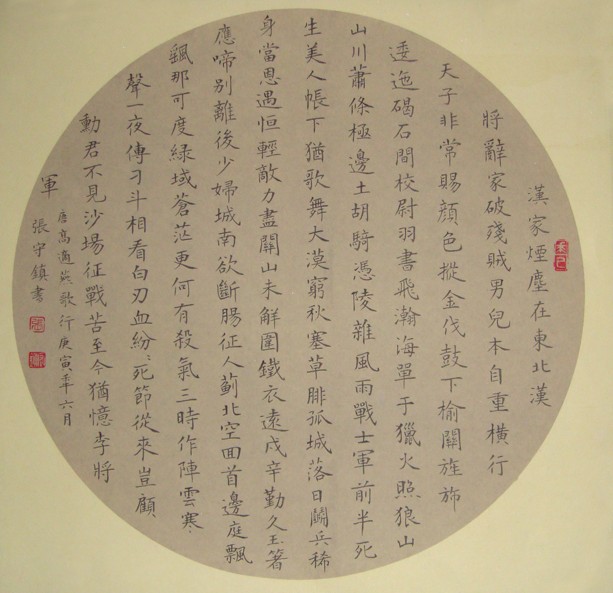 漢家煙塵在東北漢
將辭家破殘賊男兒本自重橫行
天子非常賜顏色摐金伐鼓下榆關旌旆
逶迤碣石間校尉羽書飛瀚海單于獵火照狼山
山川蕭條極邊土胡騎憑陵雜風雨戰士軍前半死
生美人帳下猶歌舞大漠窮秋塞草腓孤城落日鬬兵稀
身當恩遇恒輕敵力盡關山未解圍鐵衣遠戍辛勤久玉箸
應啼別離後少婦城南欲斷腸征人薊北空回首邊庭飄
飄那可度絕域蒼茫更何有殺氣三時作陣雲寒
聲一夜傳刁斗相看白刃血紛〻死節從來豈顧
勳君不見沙場征戰苦至今猶憶李將
軍
唐高適燕歌行庚寅年六月
張守鎮書